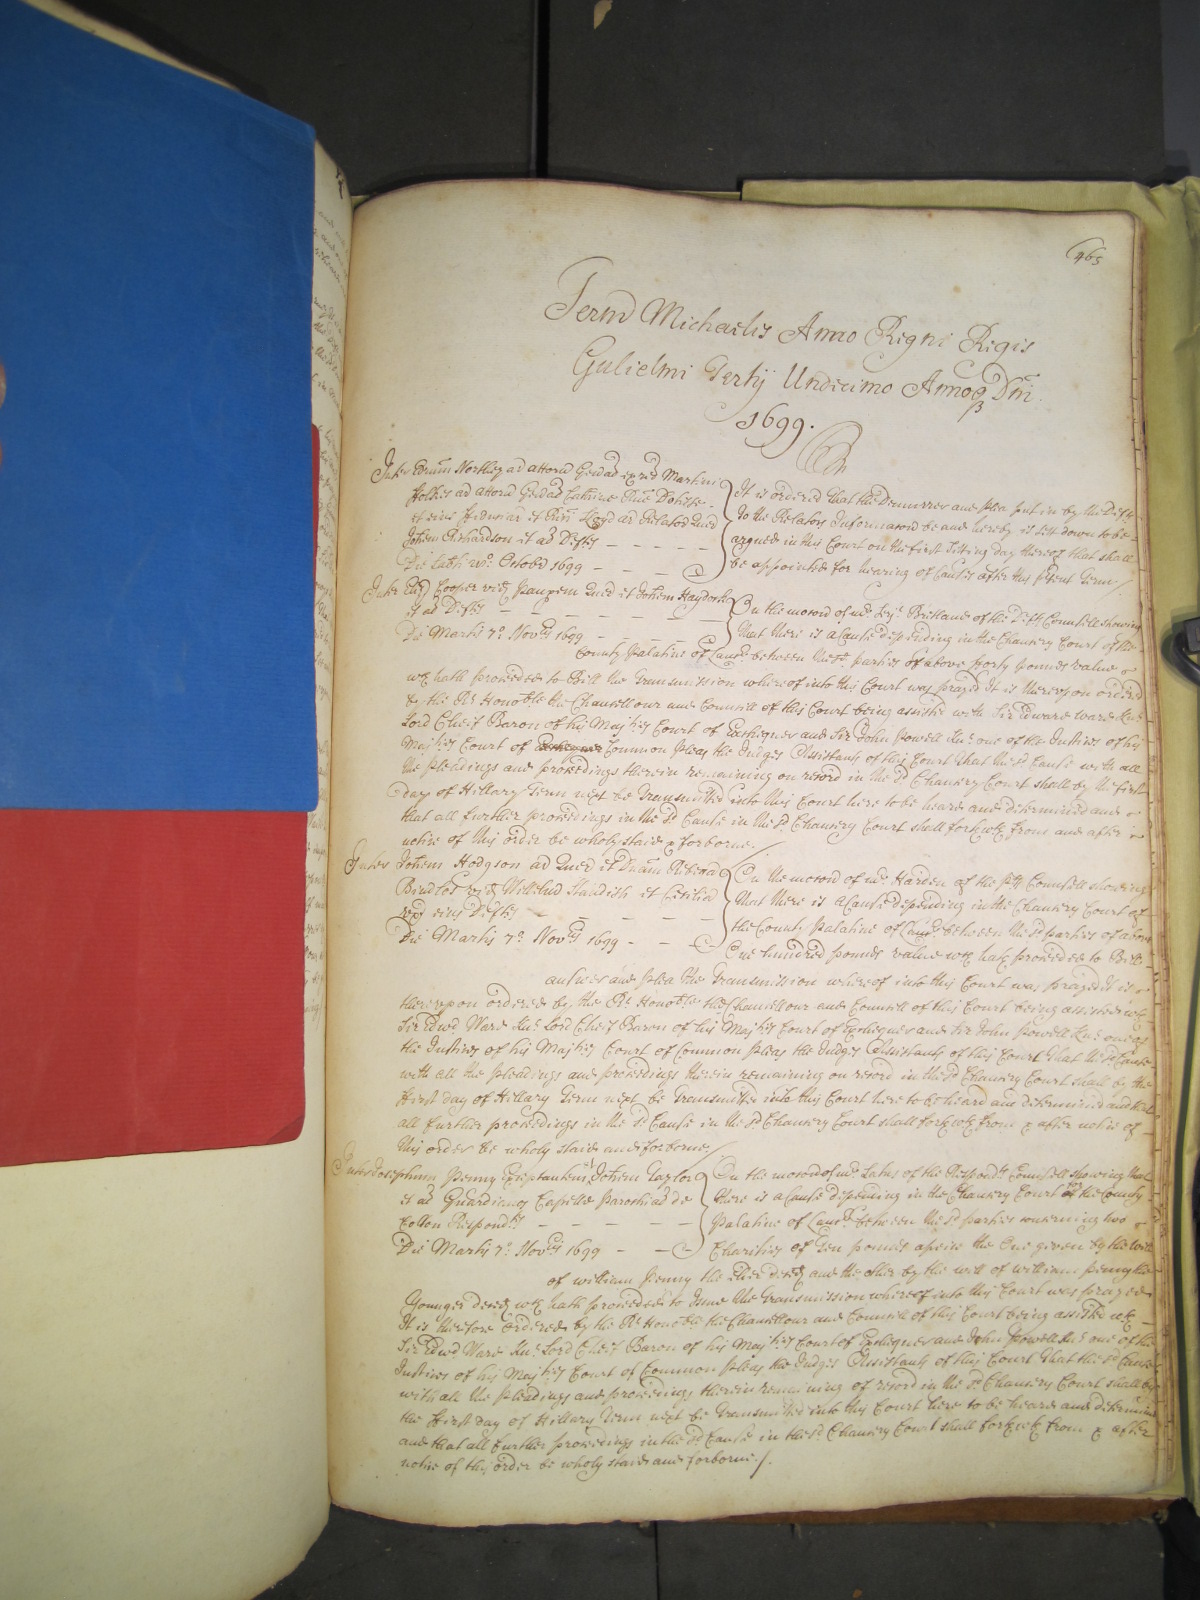 465
Termo Michaelis Anno Regni Regis
Gulielmi Tertij Undecimo Annoq Dm̃.
1699.
Inter Edrum Northey ad attorn Genlad ex rel Martini
ffolkes ad attorn Genlad
et eius et ad Relators Quer
Johem Richardson et ad Defts
Die Octobr 1699
It is ordered that the Demurrer and plea put in by the Defts
to the Relators Informacon be and hereby is sett down to be
argued in this Court on the first sitting day thereof that shall
be appointed for hearing of Causes after this p̱sent Term /
Inter Cooper vid Quer et Johem Haydock
et ad Defts
Die Martis 7o Novr 1699
On the mocon of Mr Serjt Brittaine of the Defts Councell showing
that there is a Cause depending in the Chancery Court of the
County Palatine of Lancr between the sd parties of above forty pounds value
wch hath proceeded to Bill the Transmission whereof into this Court was prayed It is thereupon ordered
by the Rt Honoble the Chancellour and Councill of this Court being assisted with Sir Edward Ward Knt
Lord Cheif Baron of his Majties Court of Exchequer and Sir John Powell Knt one of the Justices of his
Majties Court of Common pleas the Judges Assistants of this Court That the sd Cause with all
the pleadings and proceedings therein remaining on record in the sd Chancery Court shall by the first
day of Hillary Term next be Transmitted into this Court here to be heard and determined and
that all further proceedings in the sd Cause in the sd Chancery Court shall forthwth from and after
notice of this order be wholy staid & forborne.
Inter Johem Hodgson ad Quer et
Willelm Standish et Ceciliam
uxr eius Defts
Die Martis 7o Novr 1699
On the mocon of Mr Harden of the plts Councell showing
that there is a Cause depending in the Chancery Court of
the County Palatine of Lancr between the sd parties of above
One hundred pounds value wch hath proceeded to Bill
answer and plea the Transmission whereof into this Court was prayed It is
thereupon ordered by the Rt Honoble the Chancellour and Councill of this Court being assisted wth
Sir Edwd Ward Knt Lord Cheif Baron of his Majties Court of Exchequer and Sir John Powell Knt one of
the Justices of his Majties Court of Common pleas the Judges Assistants of this Court That the sd Cause
with all the pleadings and proceedings therein remaining on record in the sd Chancery Court shall by the
first day of Hillary Term next be Transmitted into this Court here to be heard and determined and that
all further proceedings in the sd Cause in the sd Chancery Court shall forthwth from & after notice of
this order be wholy staid and forborne /
Inter Josephum Penny Exceptantem et Johem Taylor
et ad Guardianos Capelle Parochiad de
Colton Respondts
Die Martis 7o Novr 1699
On the mocon of Mr of the Respondts Councell showing that
there is a Cause depending in the Chancery Court of the County
Palatine of Lancr between the sd parties concerning two
Charities of Ten pounds apeice the One given by the will
of William Penny the Elder decd and the other by the will of William Penny the
Younger decd wch hath proceeded to Issue the Transmission whereof into this Court was prayed
It is therefore Ordered by the Rt Honoble the Chancellour and Councill of this Court being assisted wth
Sir Edwd Ward Knt Lord Cheif Baron of his Majties Court of Exchequer and John Powell Knt one of the
Justices of his Majties Court of Common pleas the Judges Assistants of this Court That the sd Cause
with all the pleadings and proceedings therein remaining of record in the sd Chancery Court shall by
the ffirst day of Hillary Term next be Transmitted into this Court here to be heard and determined
and that all further proceedings in the sd Cause in the sd Chancery Court shall forthwth from & after
notice of this order be wholy staid and forborne. /.